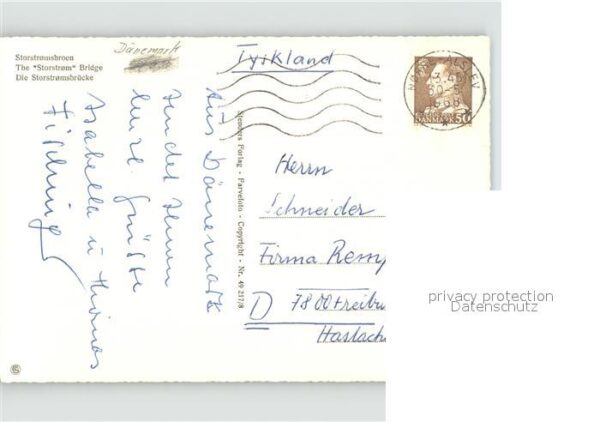 Storstrømsbroen
The "Storstrøm" Bridge
Die Storstrømsbrücke
Dänemark
Tyskland
NØ ALSLEV
30-5
DANMARK 50
Aus Dänemark
sendet Ihnen
Grüsse
Isabella u Thomas
Stenders Forlag - Farvefoto - Copyright - Nr. 49 217/8
Herrn
Schneider
Firma Remp
D 7800 Freibu
Haslach
privacy protection
Datenschutz